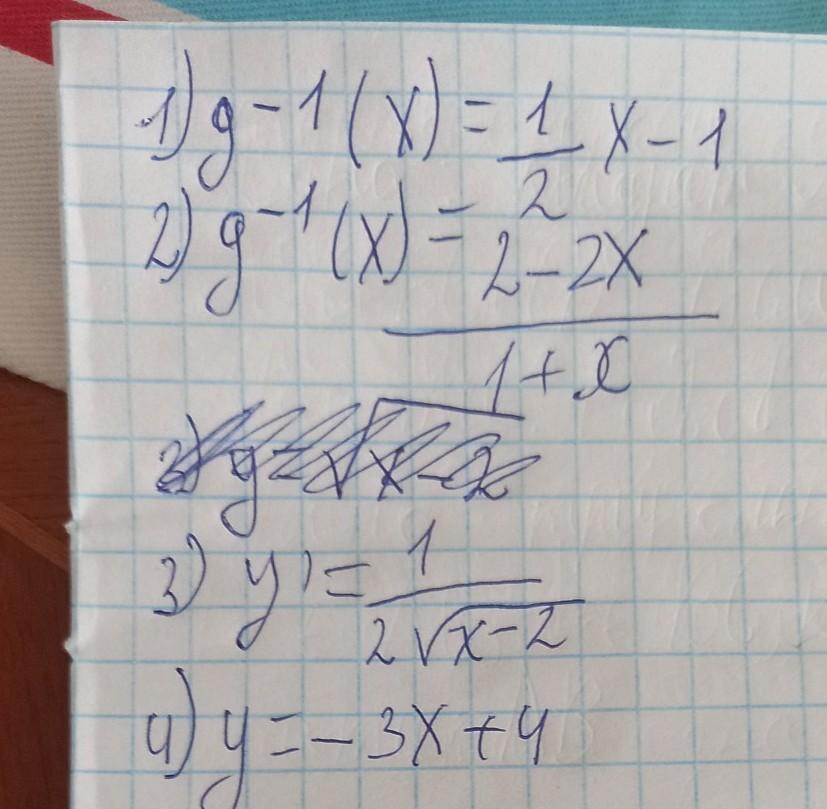 1) g-1(x) = 1/2 x - 1
2) g^-1(x) = (2-2x)/(1+x)
3) y' = 1/(2√(x-2))
4) y = -3x + 4